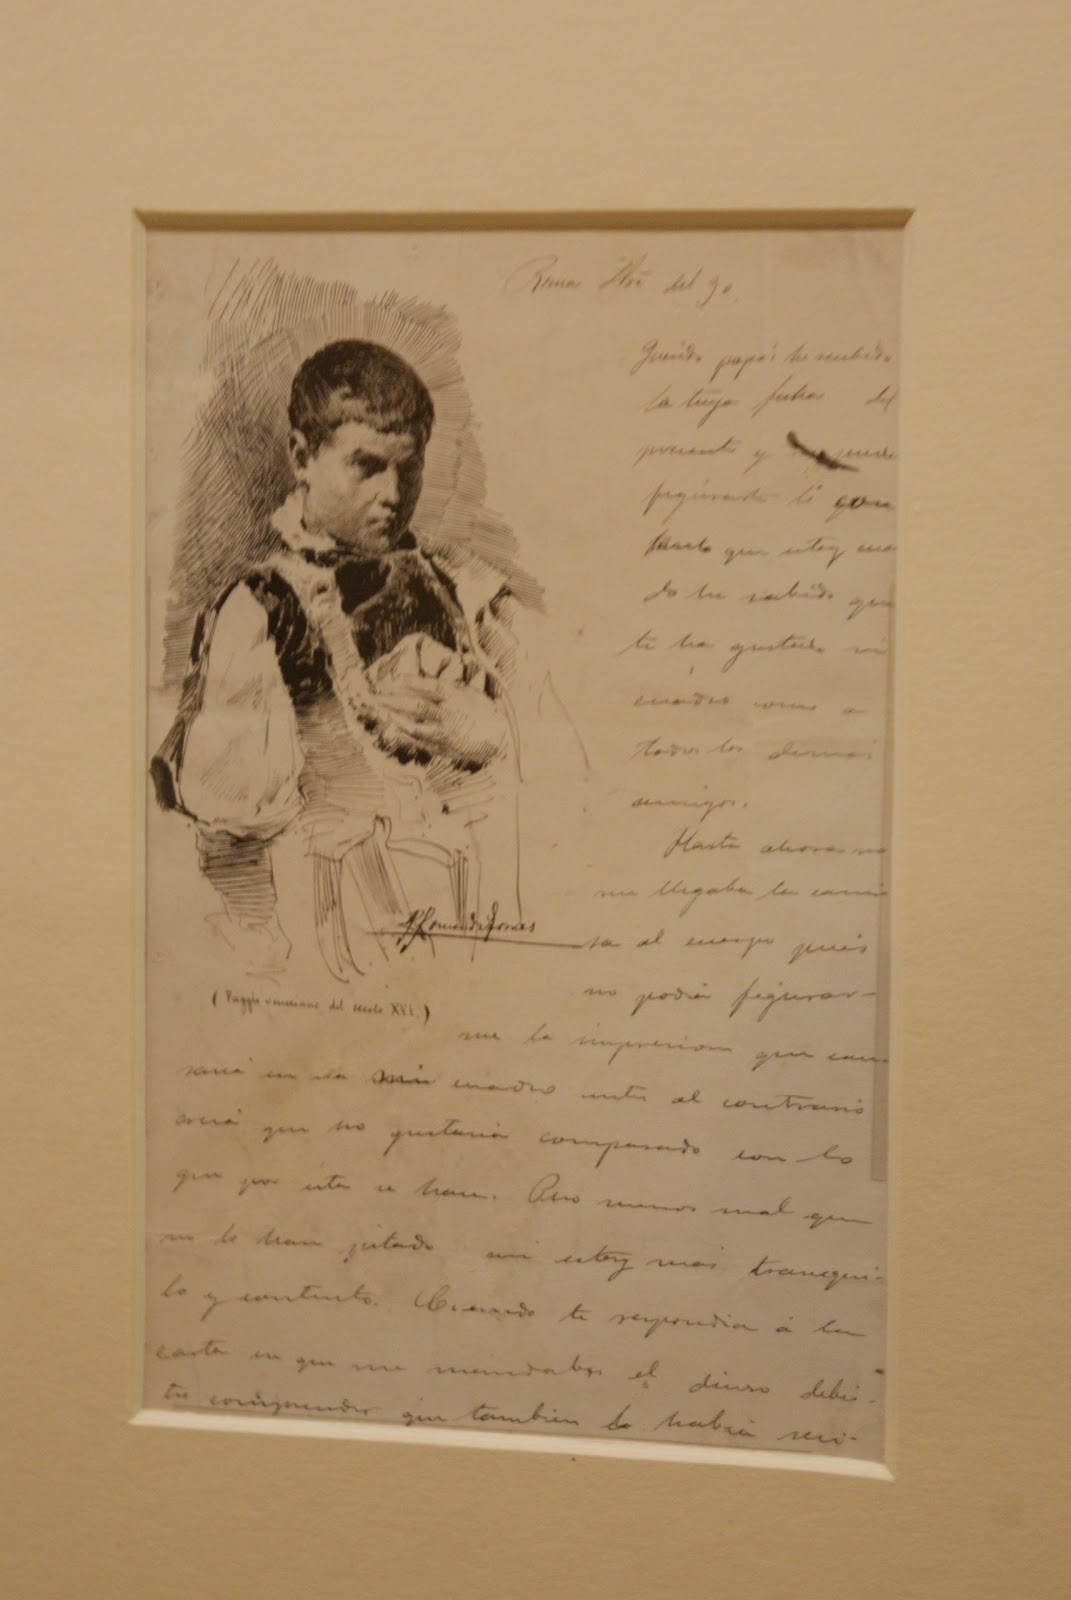 Roma del 90.
Querido papá: he recibido
la tuya fecha del
presente y puede
figurarte lo con
tento que estoy cuan
do he sabido que
te ha gustado mi
cuadro como a
todos los demas
amigos.
Hasta ahora no
me llegaba la cami
sa al cuerpo pues
no podia figurar-
me la impresion que cau
saria en esa mi cuadro antes al contrario
creia que no gustaria comparado con lo
que por esta se hace. Pero menos mal que
no lo han pitado asi estoy mas tranqui-
lo y contento. Cuando te respondia á la
carta en que me mandabas el dinero debis-
te comprender que tambien la habia reci-
(Paggio veneziano del secolo XVI.)